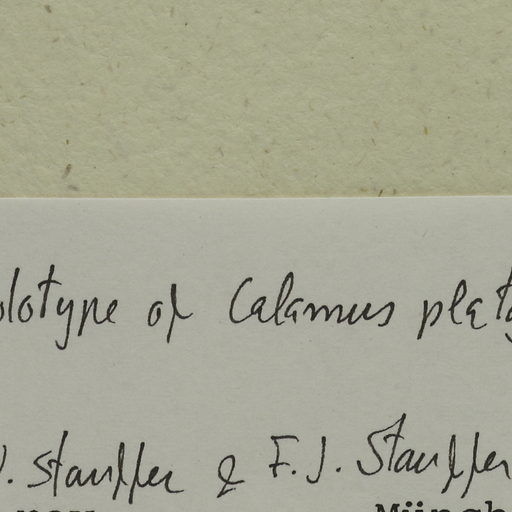 olotype of Calamus platy
. Stauffer & F. J. Stauffer